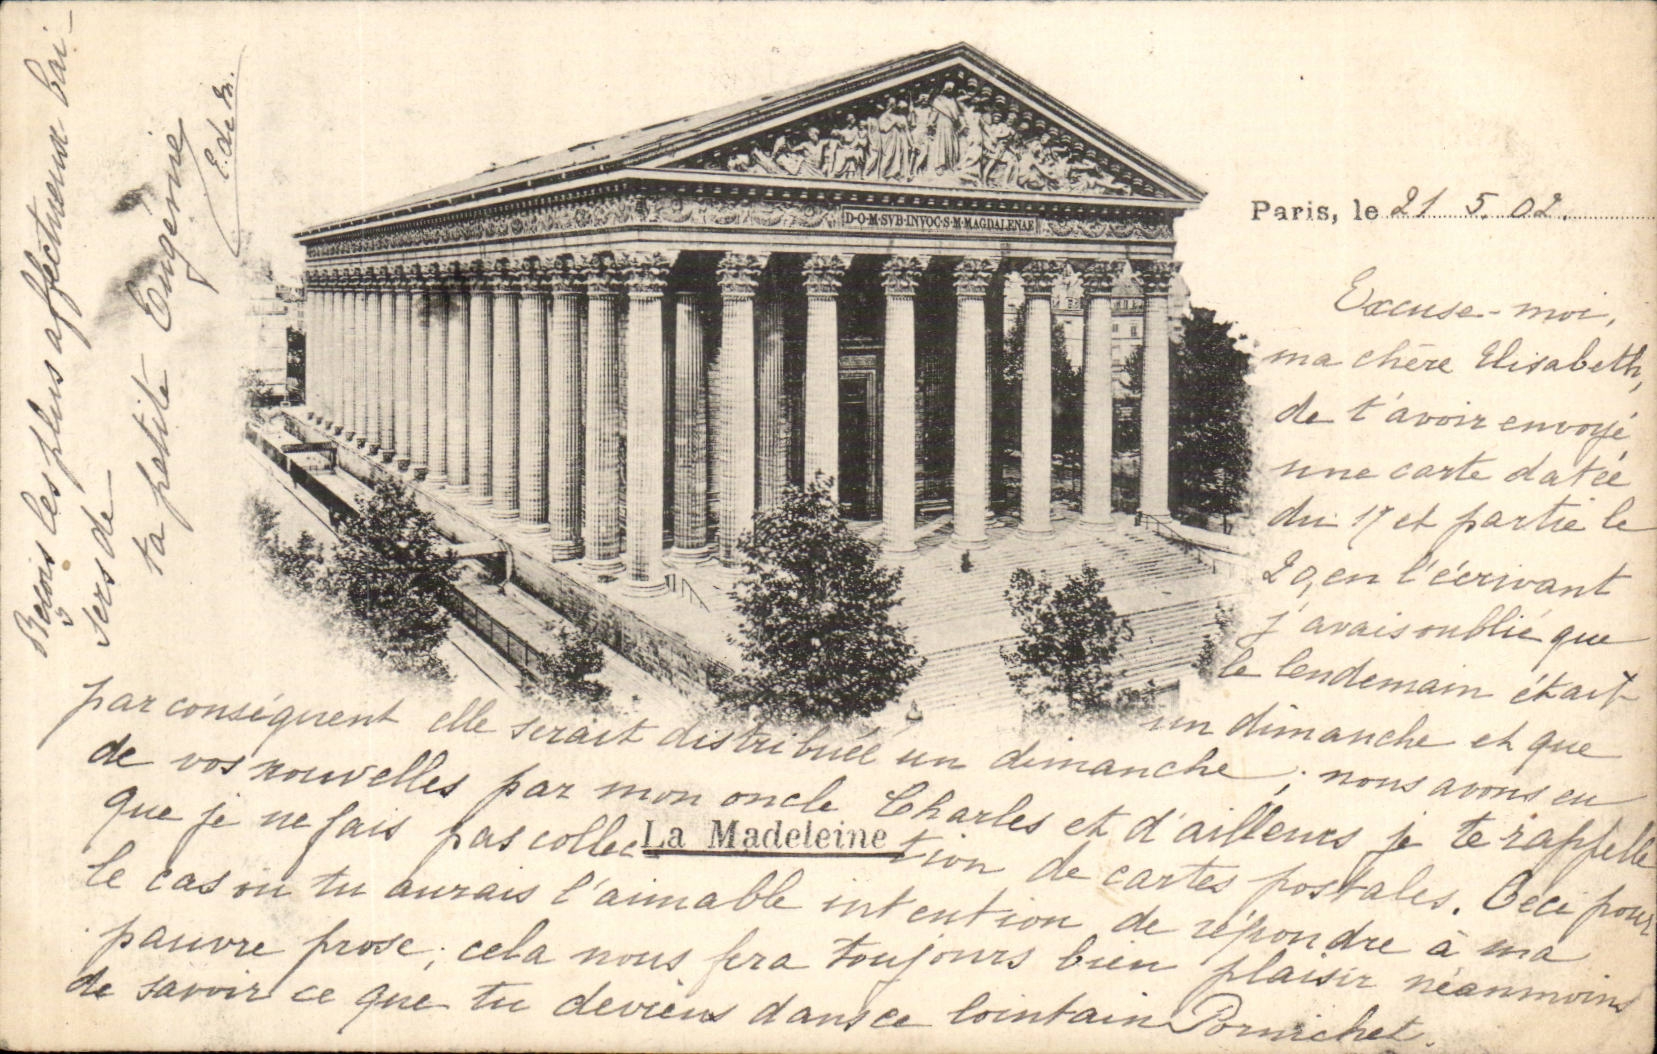 D·O·M·SVB·INVOC·S·M·MAGDALENAE
Paris, le 21 5. 02.
Excuse-moi,
ma chère Elisabeth,
de t'avoir envoyé
une carte datée
du 17 et partie le
20, en l'écrivant
j'avais oublié que
le lendemain était
un dimanche et que
par conséquent elle serait distribuée un dimanche; nous avons eu
de vos nouvelles par mon oncle Charles et d'ailleurs je te rappelle
que je ne fais pas collection de cartes postales. Ceci pour
La Madeleine
le cas où tu aurais l'aimable intention de répondre à ma
pauvre prose; cela nous fera toujours bien plaisir néanmoins
de savoir ce que tu deviens dans ce lointain Pornichet.
Reçois les plus affectueux bai-
sers de
ta petite Eugénie
E. de M.